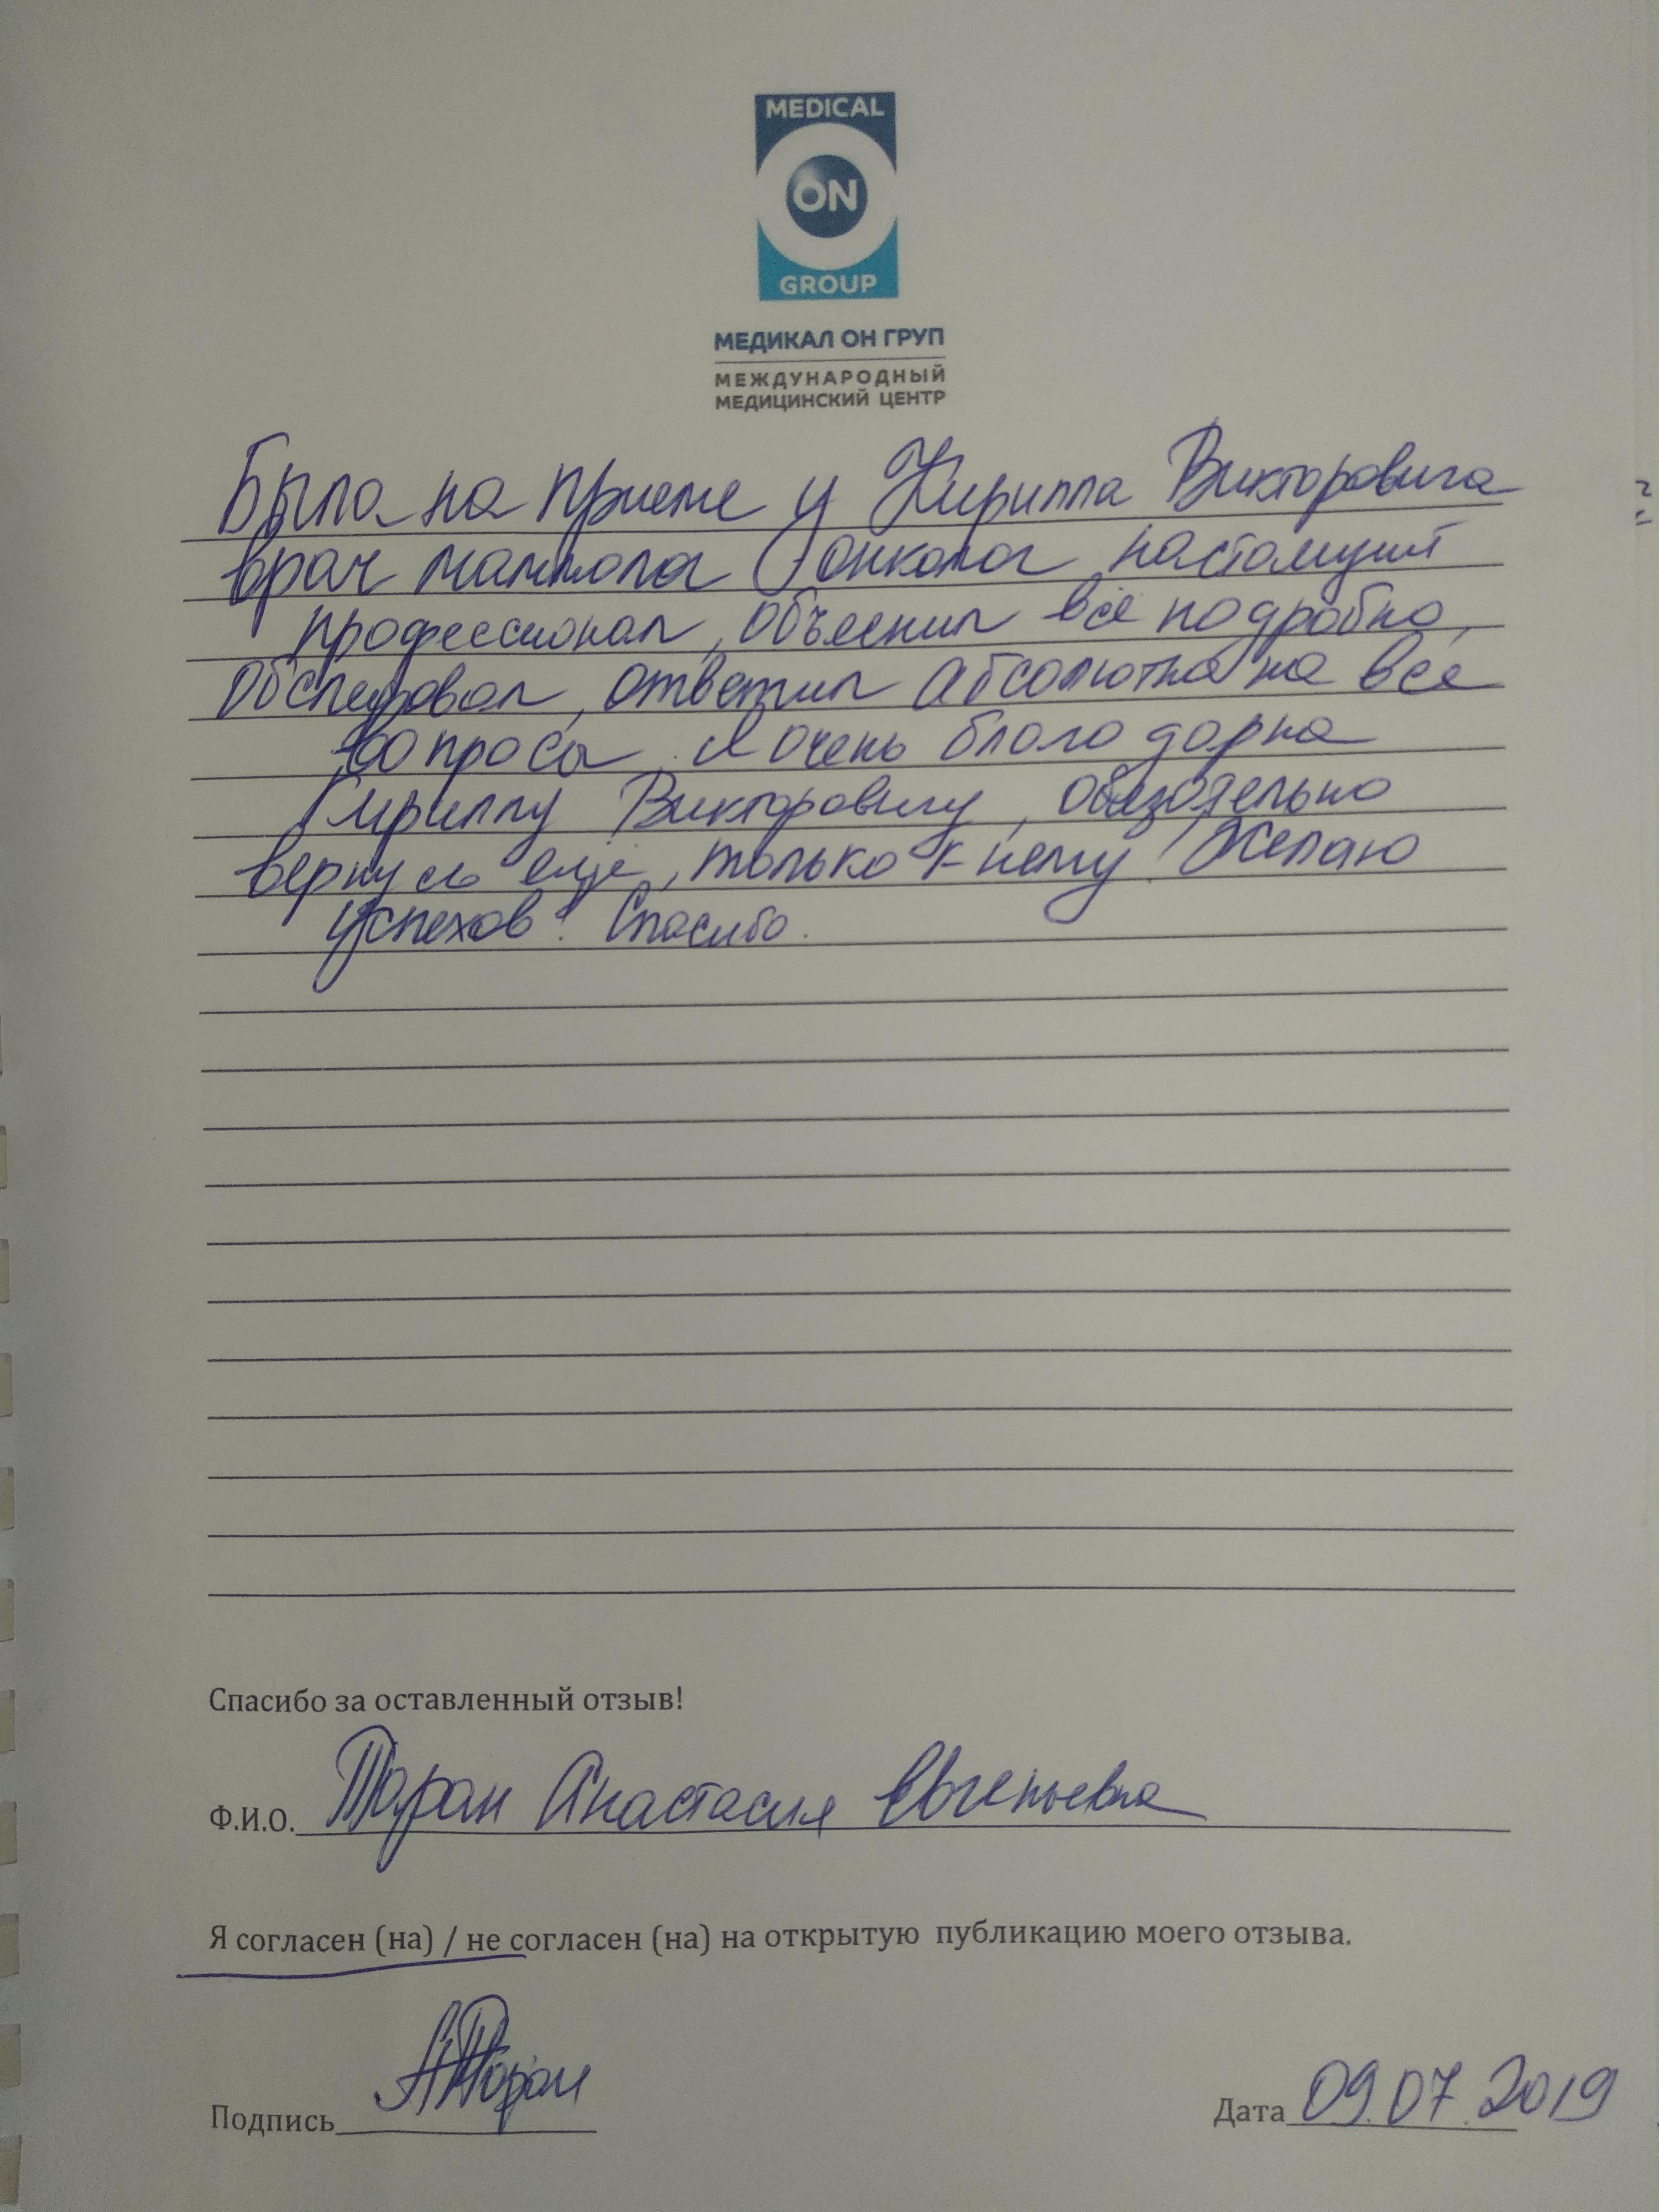 MEDICAL
ON
GROUP
МЕДИКАЛ ОН ГРУП
МЕЖДУНАРОДНЫЙ
МЕДИЦИНСКИЙ ЦЕНТР
Была на приеме у Кирилла Викторовича
врач маммолог онколог настоящий
профессионал, объяснил всё подробно,
обследовал, ответил абсолютно на все
вопросы. Я очень благодарна
Кириллу Викторовичу, обязательно
вернусь ещё, только к нему! Желаю
успехов! Спасибо.
Спасибо за оставленный отзыв!
Ф.И.О. Таран Анастасия Евгеньевна
Я согласен (на) / не согласен (на) на открытую публикацию моего отзыва.
Подпись АТаран Дата 09.07.2019